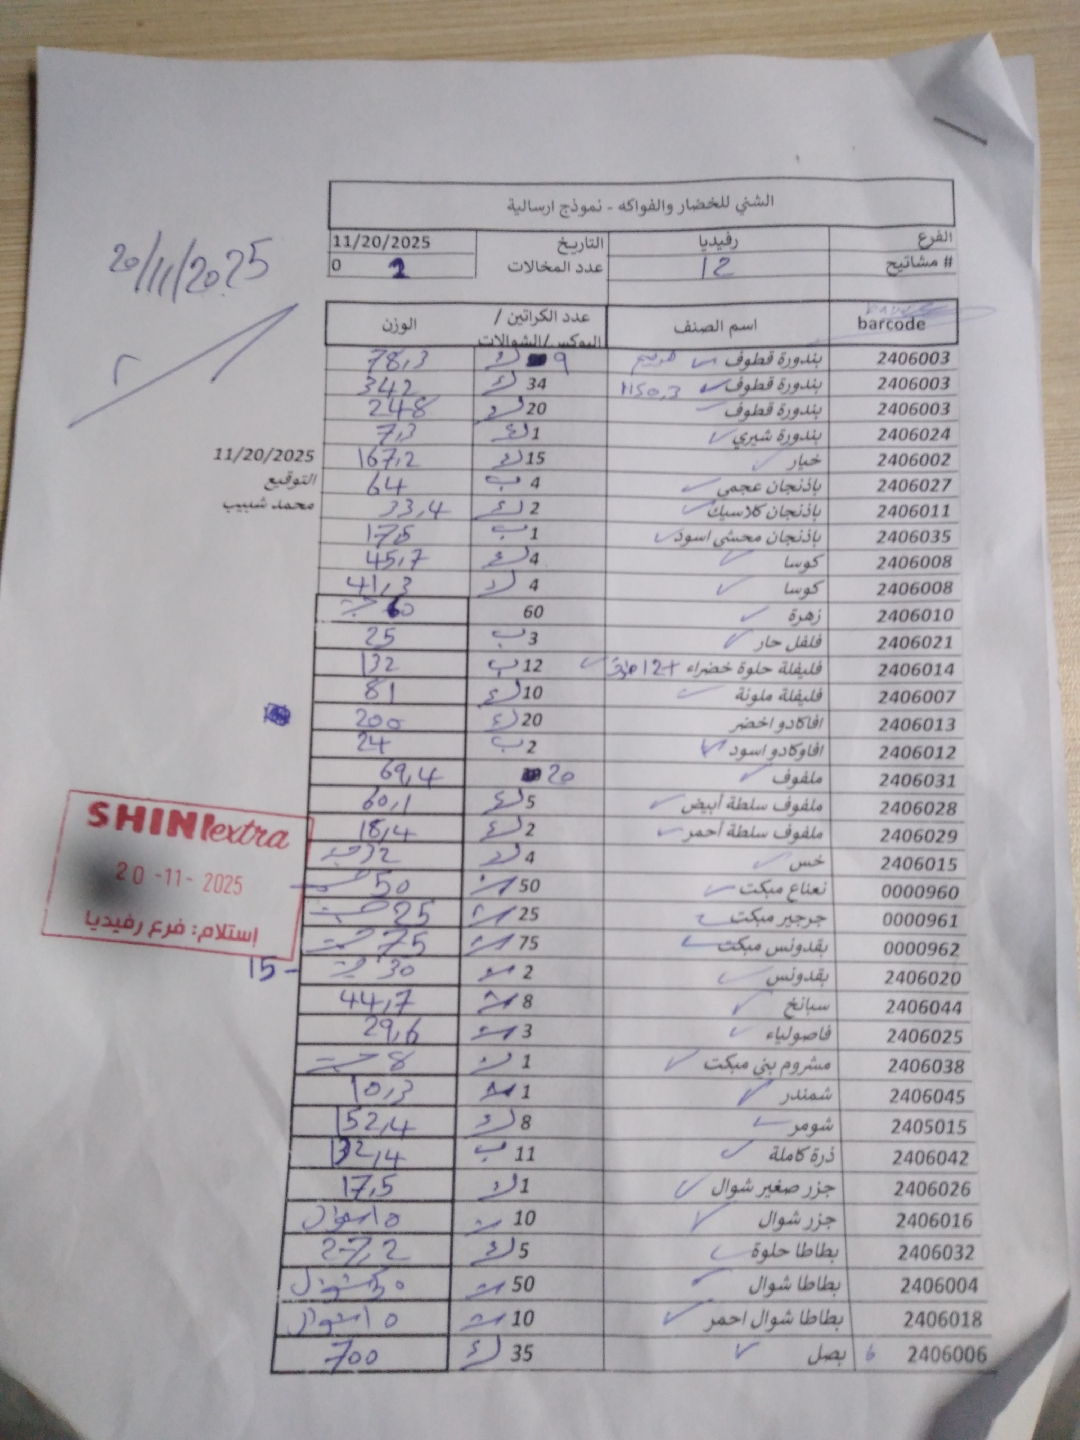 الشني للخضار والفواكه - نموذج ارسالية
الفرع رفيديا التاريخ 11/20/2025
# مشاتيح 12 عدد المخالات 0 2
20/11/2025
barcode اسم الصنف عدد الكراتين / البوكس/الشوالات الوزن
2406003 بندورة قطوف 9 78,3
2406003 بندورة قطوف 1150,3 34 342
2406003 بندورة قطوف 20 248
2406024 بندورة شيري 1 7,3
2406002 خيار 15 167,2
11/20/2025
التوقيع
محمد شبيب
2406027 باذنجان عجمي 4 ب 64
2406011 باذنجان كلاسيك 2 33,4
2406035 باذنجان محشي اسود 1 ب 17,5
2406008 كوسا 4 45,7
2406008 كوسا 4 41,3
2406010 زهرة 60 60
2406021 فلفل حار 3 ب 25
2406014 فليفلة حلوة خضراء 12 ب 132
2406007 فليفلة ملونة 10 81
2406013 افاكادو اخضر 20 200
2406012 افاوكادو اسود 2 ب 24
2406031 ملفوف 20 69,4
2406028 ملفوف سلطة أبيض 5 60,1
2406029 ملفوف سلطة أحمر 2 18,4
2406015 خس 4 32
0000960 نعناع مبكت 50 50
0000961 جرجير مبكت 25 25
0000962 بقدونس مبكت 75 75
2406020 بقدونس 2 30 15-
2406044 سبانخ 8 44,7
2406025 فاصولياء 3 29,6
2406038 مشروم بني مبكت 1 8
2406045 شمندر 1 10,3
2405015 شومر 8 152,4
2406042 ذرة كاملة 11 ب 132,4
2406026 جزر صغير شوال 1 17,5
2406016 جزر شوال 10 10 شوال
2406032 بطاطا حلوة 5 27,2
2406004 بطاطا شوال 50 50 شوال
2406018 بطاطا شوال احمر 10 10 شوال
2406006 بصل 35 700
SHINI extra
20-11-2025
إستلام: فرع رفيديا